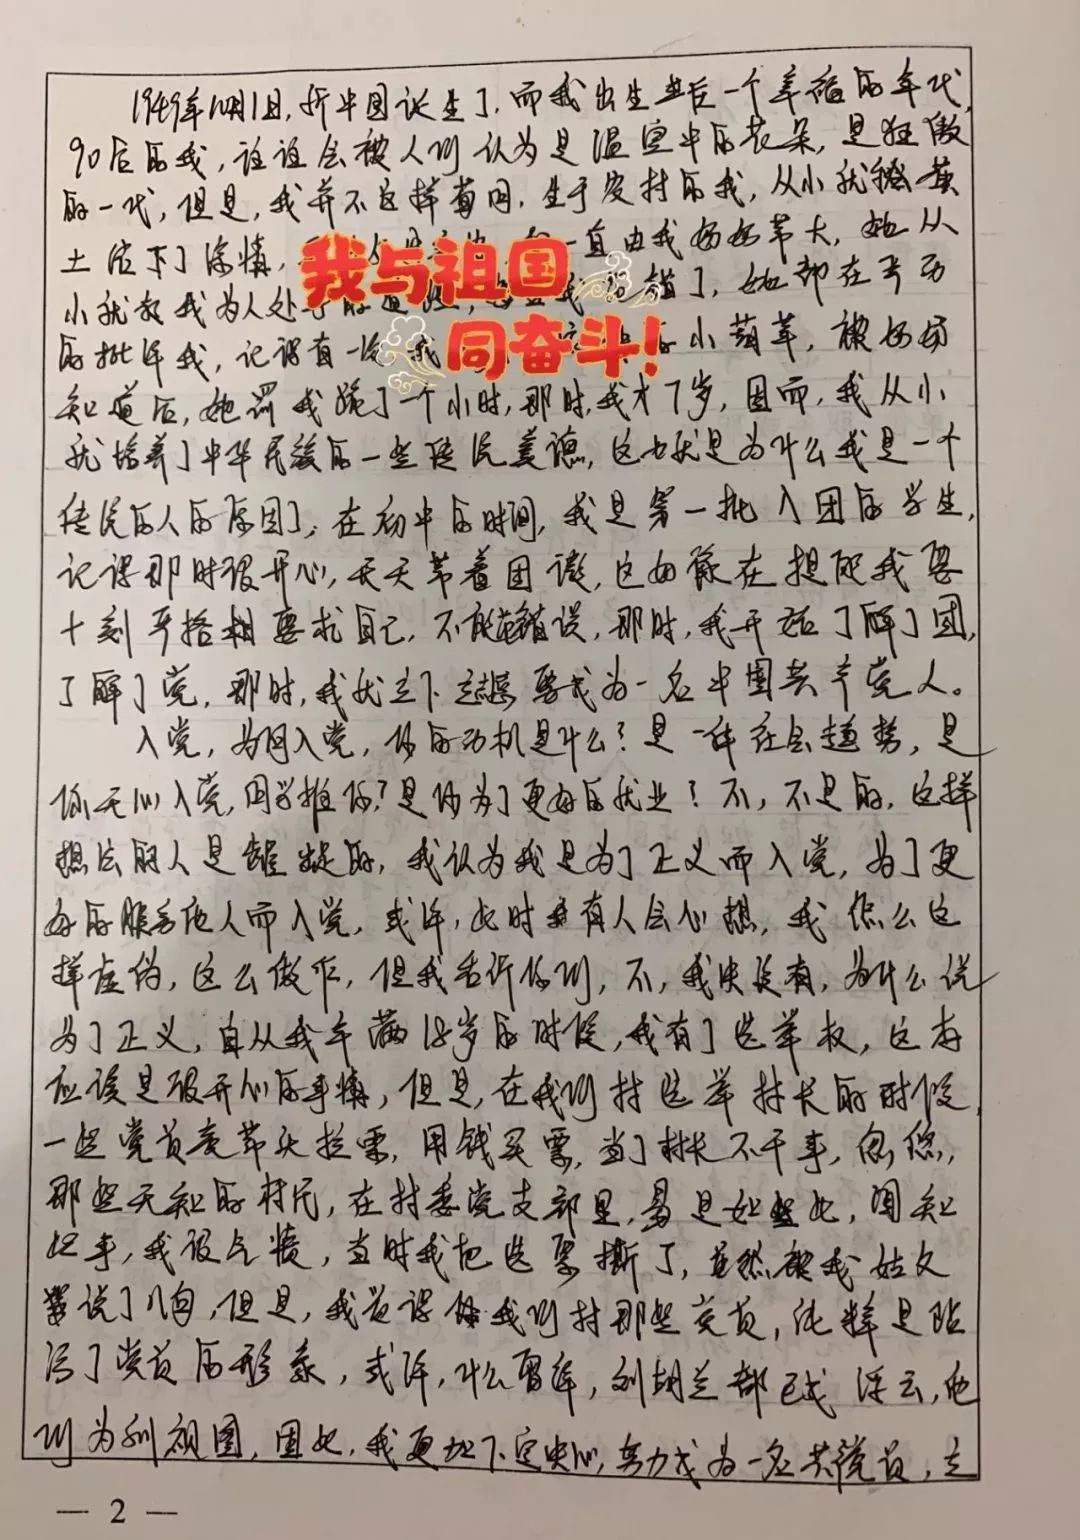 1949年10月1日，新中国诞生了，而我出生在后一个幸福的年代，
90后的我，往往会被人们认为是温室中的花朵，是狂傲
的一代，但是，我并不这样苟同，生于农村的我，从小就
土
一直由我奶奶带大，她从
我与祖国
小就教我为人处 了，她都在
同奋斗！
的批评我，记得有一次我 小葫芦，被奶奶
知道后，她罚我跪了一个小时，那时，我才7岁，因而，我从小
就培养了中华民族的一些传统美德，这也就是为什么我是一个
传统的人的原因了，在初中的时间，我是第一批入团的学生，
记得那时很开心，天天带着团徽，这如像在提醒我要
十刻严格 要求自己，不能 错误，那时，我开始了解了团，
了解了党，那时，我就立下 要成为一名中国共产党人。
入党，为何入党，你的动机是什么？是一种社会趋势，是
你无心入党，同学推你？是你为了更好的就业？不，不是的，这样
想法的人是错 的，我认为我是为了正义而入党，为了更
好的服务他人而入党，或许，此时 有人会心想，我怎么这
样虚伪，这么做作，但我告诉你们，不，我决没有，为什么说
为了正义，自从我年满18岁的时候，我有了选举权，这本
应该是很开心的事情，但是，在我们村选举村长的时候，
一些党员竟带头拉票，用钱买票，当了村长不干事，忽悠，
那些无知的村民，在村委党支部里， 是如此，闻知
此事，我很气愤，当时我把选票撕了，虽然被我姑父
说了几句，但是，我觉得 我们村那些党员，纯粹是玷
污了党员的形象，或许，什么雷锋，刘胡兰都已成浮云，他
们为 ，因此，我更加下定决心，努力成为一名共党员，立
— 2 —